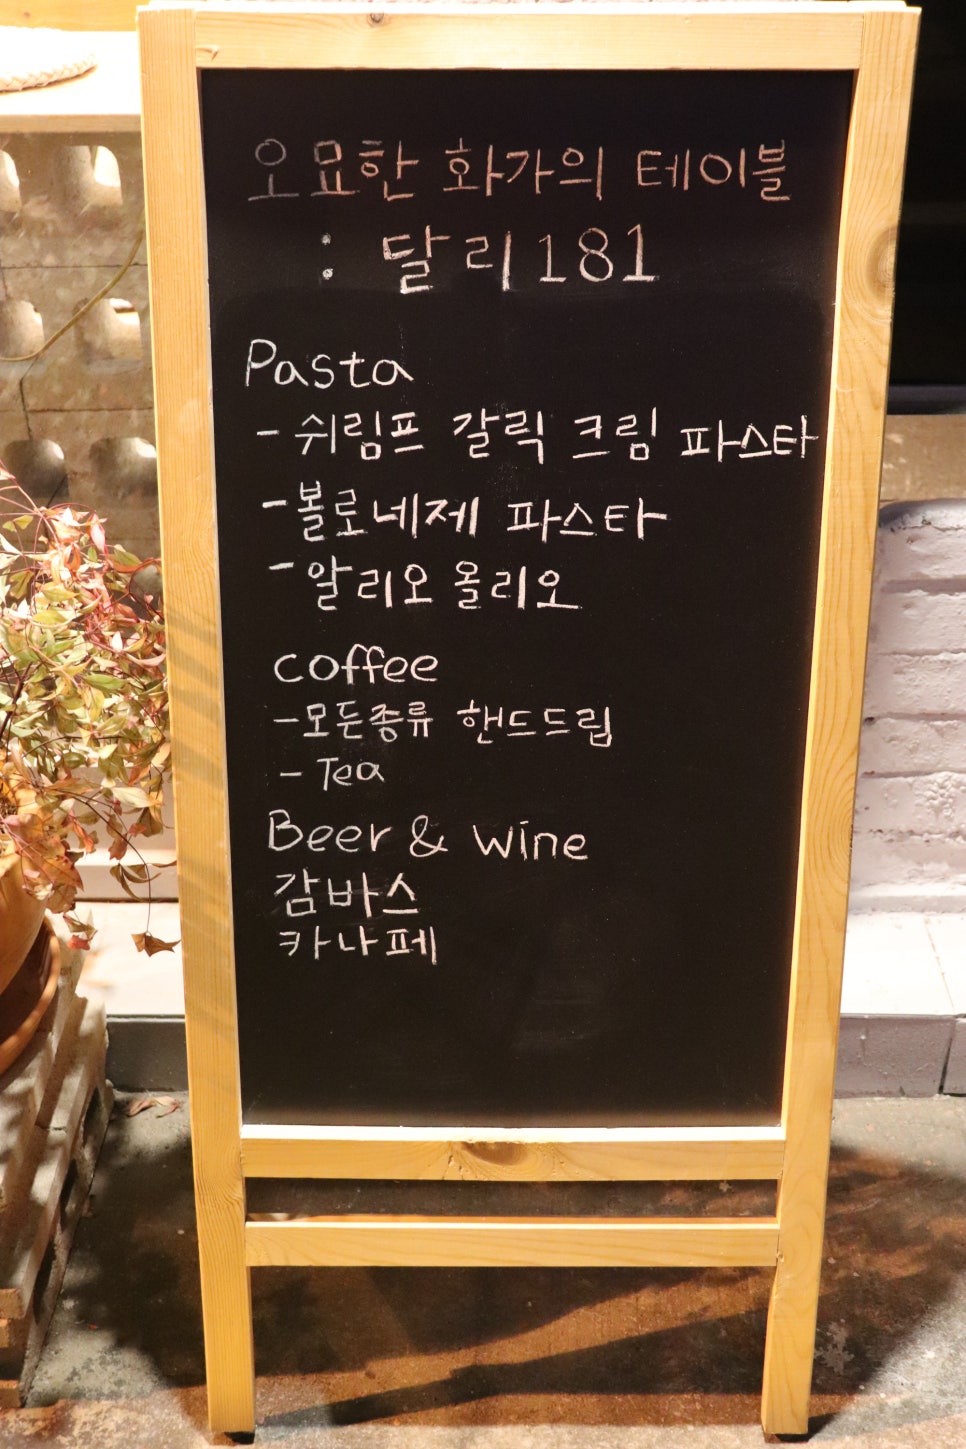 오묘한 화가의 테이블
: 달리 181
Pasta
- 쉬림프 갈릭 크림 파스타
- 볼로네제 파스타
- 알리오 올리오
coffee
- 모든종류 핸드드립
- Tea
Beer & wine
감바스
카나페